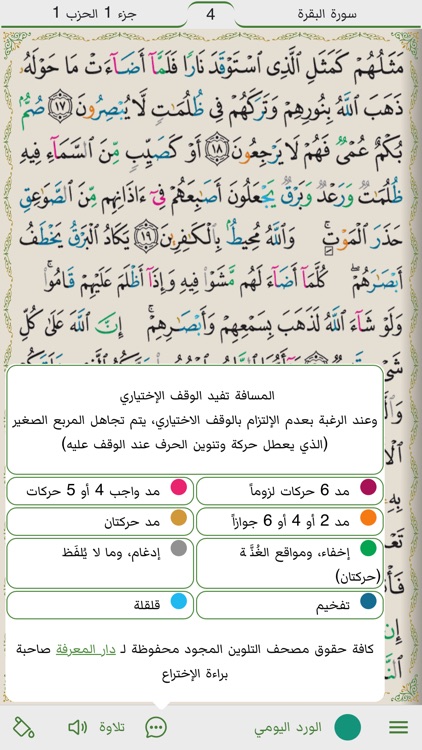 سورة البقرة
4
جزء 1 الحزب 1
مَثَلُهُمْ كَمَثَلِ ٱلَّذِى ٱسْتَوْقَدَ نَارًا فَلَمَّآ أَضَآءَتْ مَا حَوْلَهُۥ
ذَهَبَ ٱللَّهُ بِنُورِهِمْ وَتَرَكَهُمْ فِى ظُلُمَٰتٍ لَّا يُبْصِرُونَ ١٧ صُمٌّۢ
بُكْمٌ عُمْىٌ فَهُمْ لَا يَرْجِعُونَ ١٨ أَوْ كَصَيِّبٍ مِّنَ ٱلسَّمَآءِ فِيهِ
ظُلُمَٰتٌ وَرَعْدٌ وَبَرْقٌ يَجْعَلُونَ أَصَٰبِعَهُمْ فِىٓ ءَاذَانِهِم مِّنَ ٱلصَّوَٰعِقِ
حَذَرَ ٱلْمَوْتِ ۚ وَٱللَّهُ مُحِيطٌۢ بِٱلْكَٰفِرِينَ ١٩ يَكَادُ ٱلْبَرْقُ يَخْطَفُ
أَبْصَٰرَهُمْ ۖ كُلَّمَآ أَضَآءَ لَهُم مَّشَوْا۟ فِيهِ وَإِذَآ أَظْلَمَ عَلَيْهِمْ قَامُوا۟ ۚ
وَلَوْ شَآءَ ٱللَّهُ لَذَهَبَ بِسَمْعِهِمْ وَأَبْصَٰرِهِمْ ۚ إِنَّ ٱللَّهَ عَلَىٰ كُلِّ
المسافة تفيد الوقف الإختياري
وعند الرغبة بعدم الإلتزام بالوقف الاختياري، يتم تجاهل المربع الصغير
(الذي يعطل حركة وتنوين الحرف عند الوقف عليه)
مد 6 حركات لزوماً
مد واجب 4 أو 5 حركات
مد 2 أو 4 أو 6 جوازاً
مد حركتان
إخفاء، ومواقع الغُنَّة
(حركتان)
إدغام، وما لا يُلفَظ
تفخيم
قلقلة
كافة حقوق مصحف التلوين المجود محفوظة لـ دار المعرفة صاحبة
براءة الإختراع
الورد اليومي
تلاوة